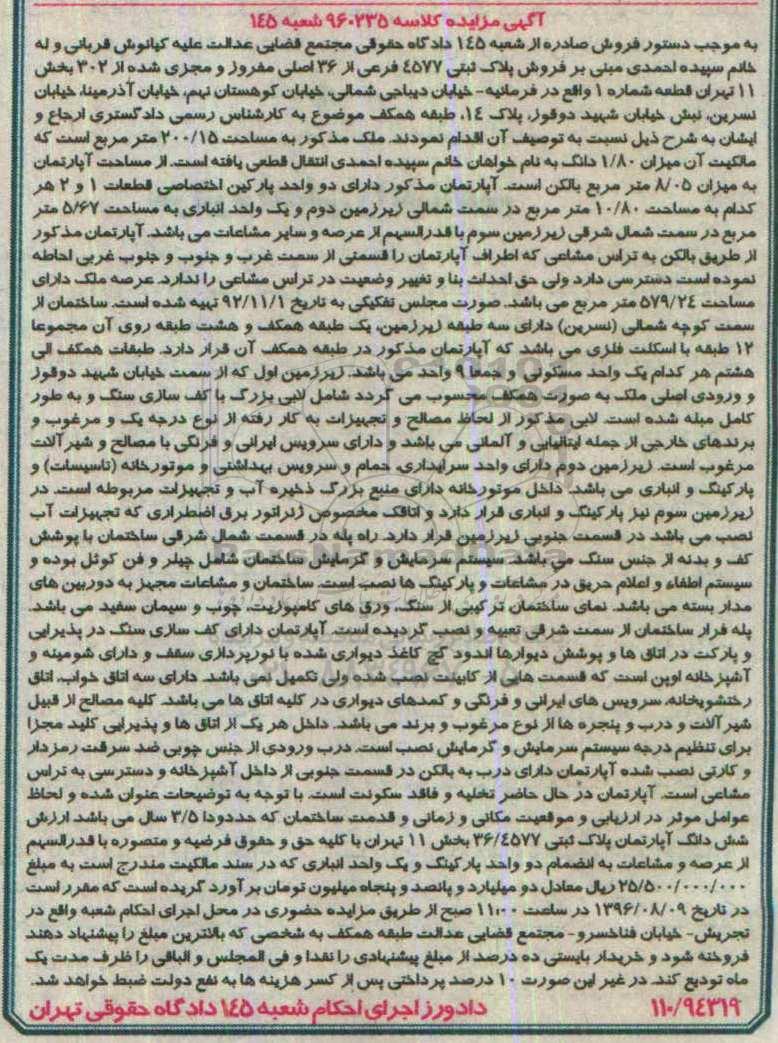 آگهی مزایده کلاسه ۹۶۰۲۳۵ شعبه ۱٤۵
به موجب دستور فروش صادره از شعبه ۱٤۵ دادگاه حقوقی مجتمع قضایی عدالت علیه کیانوش قربانی و له
خانم سپیده احمدی مبنی بر فروش پلاک ثبتی ٤۵۷۷ فرعی از ۳۶ اصلی مفروز و مجزی شده از ۳۰۲ بخش
۱۱ تهران قطعه شماره ۱ واقع در فرمانیه- خیابان دیباجی شمالی، خیابان کوهستان نهم، خیابان آذرمینا، خیابان
نسرین، نبش خیابان شهید دوقوز، پلاک ۱٤، طبقه همکف موضوع به کارشناس رسمی دادگستری ارجاع و
ایشان به شرح ذیل نسبت به توصیف آن اقدام نمودند. ملک مذکور به مساحت ۲۰۰/۱۵ متر مربع است که
مالکیت آن میزان ۱/۸۰ دانگ به نام خواهان خانم سپیده احمدی انتقال قطعی یافته است. از مساحت آپارتمان
به میزان ۸/۰۵ متر مربع بالکن است. آپارتمان مذکور دارای دو واحد پارکین اختصاصی قطعات ۱ و ۲ هر
کدام به مساحت ۱۰/۸۰ متر مربع در سمت شمالی زیرزمین دوم و یک واحد انباری به مساحت ۵/۶۷ متر
مربع در سمت شمال شرقی زیرزمین سوم با قدرالسهم از عرصه و سایر مشاعات می باشد. آپارتمان مذکور
از طریق بالکن به تراس مشاعی که اطراف آپارتمان را قسمتی از سمت غرب و جنوب و جنوب غربی احاطه
نموده است دسترسی دارد ولی حق احداث بنا و تغییر وضعیت در تراس مشاعی را ندارد. عرصه ملک دارای
مساحت ۵۷۹/۲٤ متر مربع می باشد. صورت مجلس تفکیکی به تاریخ ۹۲/۱۱/۱ تهیه شده است. ساختمان از
سمت کوچه شمالی (نسرین) دارای سه طبقه زیرزمین، یک طبقه همکف و هشت طبقه روی آن مجموعا
۱۲ طبقه با اسکلت فلزی می باشد که آپارتمان مذکور در طبقه همکف آن قرار دارد. طبقات همکف الی
هشتم هر کدام یک واحد مسکونی و جمعا ۹ واحد می باشد. زیرزمین اول که از سمت خیابان شهید دوقوز
و ورودی اصلی ملک به صورت همکف محسوب می گردد شامل لابی بزرگ با کف سازی سنگ و به طور
کامل مبله شده است. لابی مذکور از لحاظ مصالح و تجهیزات به کار رفته از نوع درجه یک و مرغوب و
برندهای خارجی از جمله ایتالیایی و آلمانی می باشد و دارای سرویس ایرانی و فرنگی با مصالح و شیرآلات
مرغوب است. زیرزمین دوم دارای واحد سرایداری، حمام و سرویس بهداشتی و موتورخانه (تاسیسات) و
پارکینگ و انباری می باشد. داخل موتورخانه دارای منبع بزرگ ذخیره آب و تجهیزات مربوطه است. در
زیرزمین سوم نیز پارکینگ و انباری قرار دارد و اتاقک مخصوص ژنراتور برق اضطراری که تجهیزات آب
نصب می باشد در قسمت جنوبی زیرزمین قرار دارد. راه پله در قسمت شمال شرقی ساختمان با پوشش
کف و بدنه از جنس سنگ می باشد. سیستم سرمایش و گرمایش ساختمان شامل چیلر و فن کوئل بوده و
سیستم اطفاء و اعلام حریق در مشاعات و پارکینگ ها نصب است. ساختمان و مشاعات مجهز به دوربین های
مدار بسته می باشد. نمای ساختمان ترکیبی از سنگ، ورق های کامپوزیت، چوب و سیمان سفید می باشد.
پله فرار ساختمان از سمت شرقی تعبیه و نصب گردیده است. آپارتمان دارای کف سازی سنگ در پذیرایی
و پارکت در اتاق ها و پوشش دیوارها اندود گچ کاغذ دیواری شده با نورپردازی سقف و دارای شومینه و
آشپزخانه اوپن است که قسمت هایی از کابینت نصب شده ولی تکمیل نمی باشد. دارای سه اتاق خواب، اتاق
رختشویخانه، سرویس های ایرانی و فرنگی و کمدهای دیواری در کلیه اتاق ها می باشد. کلیه مصالح از قبیل
شیرآلات و درب و پنجره ها از نوع مرغوب و برند می باشد. داخل هر یک از اتاق ها و پذیرایی کلید مجزا
برای تنظیم درجه سیستم سرمایش و گرمایش نصب است. درب ورودی از جنس چوبی ضد سرقت رمزدار
و کارتی نصب شده آپارتمان دارای درب به بالکن در قسمت جنوبی از داخل آشپزخانه و دسترسی به تراس
مشاعی است. آپارتمان در حال حاضر تخلیه و فاقد سکونت است. با توجه به توضیحات عنوان شده و لحاظ
عوامل موثر در ارزیابی و موقعیت مکانی و زمانی و قدمت ساختمان که حدودا ۳/۵ سال می باشد ارزش
شش دانگ آپارتمان پلاک ثبتی ۳۶/٤۵۷۷ بخش ۱۱ تهران با کلیه حق و حقوق فرضیه و متصوره با قدرالسهم
از عرصه و مشاعات به انضمام دو واحد پارکینگ و یک واحد انباری که در سند مالکیت مندرج است به مبلغ
۲۵/۵۰۰/۰۰۰/۰۰۰ ریال معادل دو میلیارد و پانصد و پنجاه میلیون تومان برآورد گریده است که مقرر است
در تاریخ ۱۳۹۶/۰۸/۰۹ در ساعت ۱۱:۰۰ صبح از طریق مزایده حضوری در محل اجرای احکام شعبه واقع در
تجریش- خیابان فناخسرو- مجتمع قضایی عدالت طبقه همکف به شخصی که بالاترین مبلغ را پیشنهاد دهند
فروخته شود و خریدار بایستی ده درصد از مبلغ پیشنهادی را نقدا و فی المجلس و الباقی را ظرف مدت یک
ماه تودیع کند. در غیر این صورت ۱۰ درصد پرداختی پس از کسر هزینه ها به نفع دولت ضبط خواهد شد.
۱۱۰/۹٤۳۱۹ دادورز اجرای احکام شعبه ۱٤۵ دادگاه حقوقی تهران